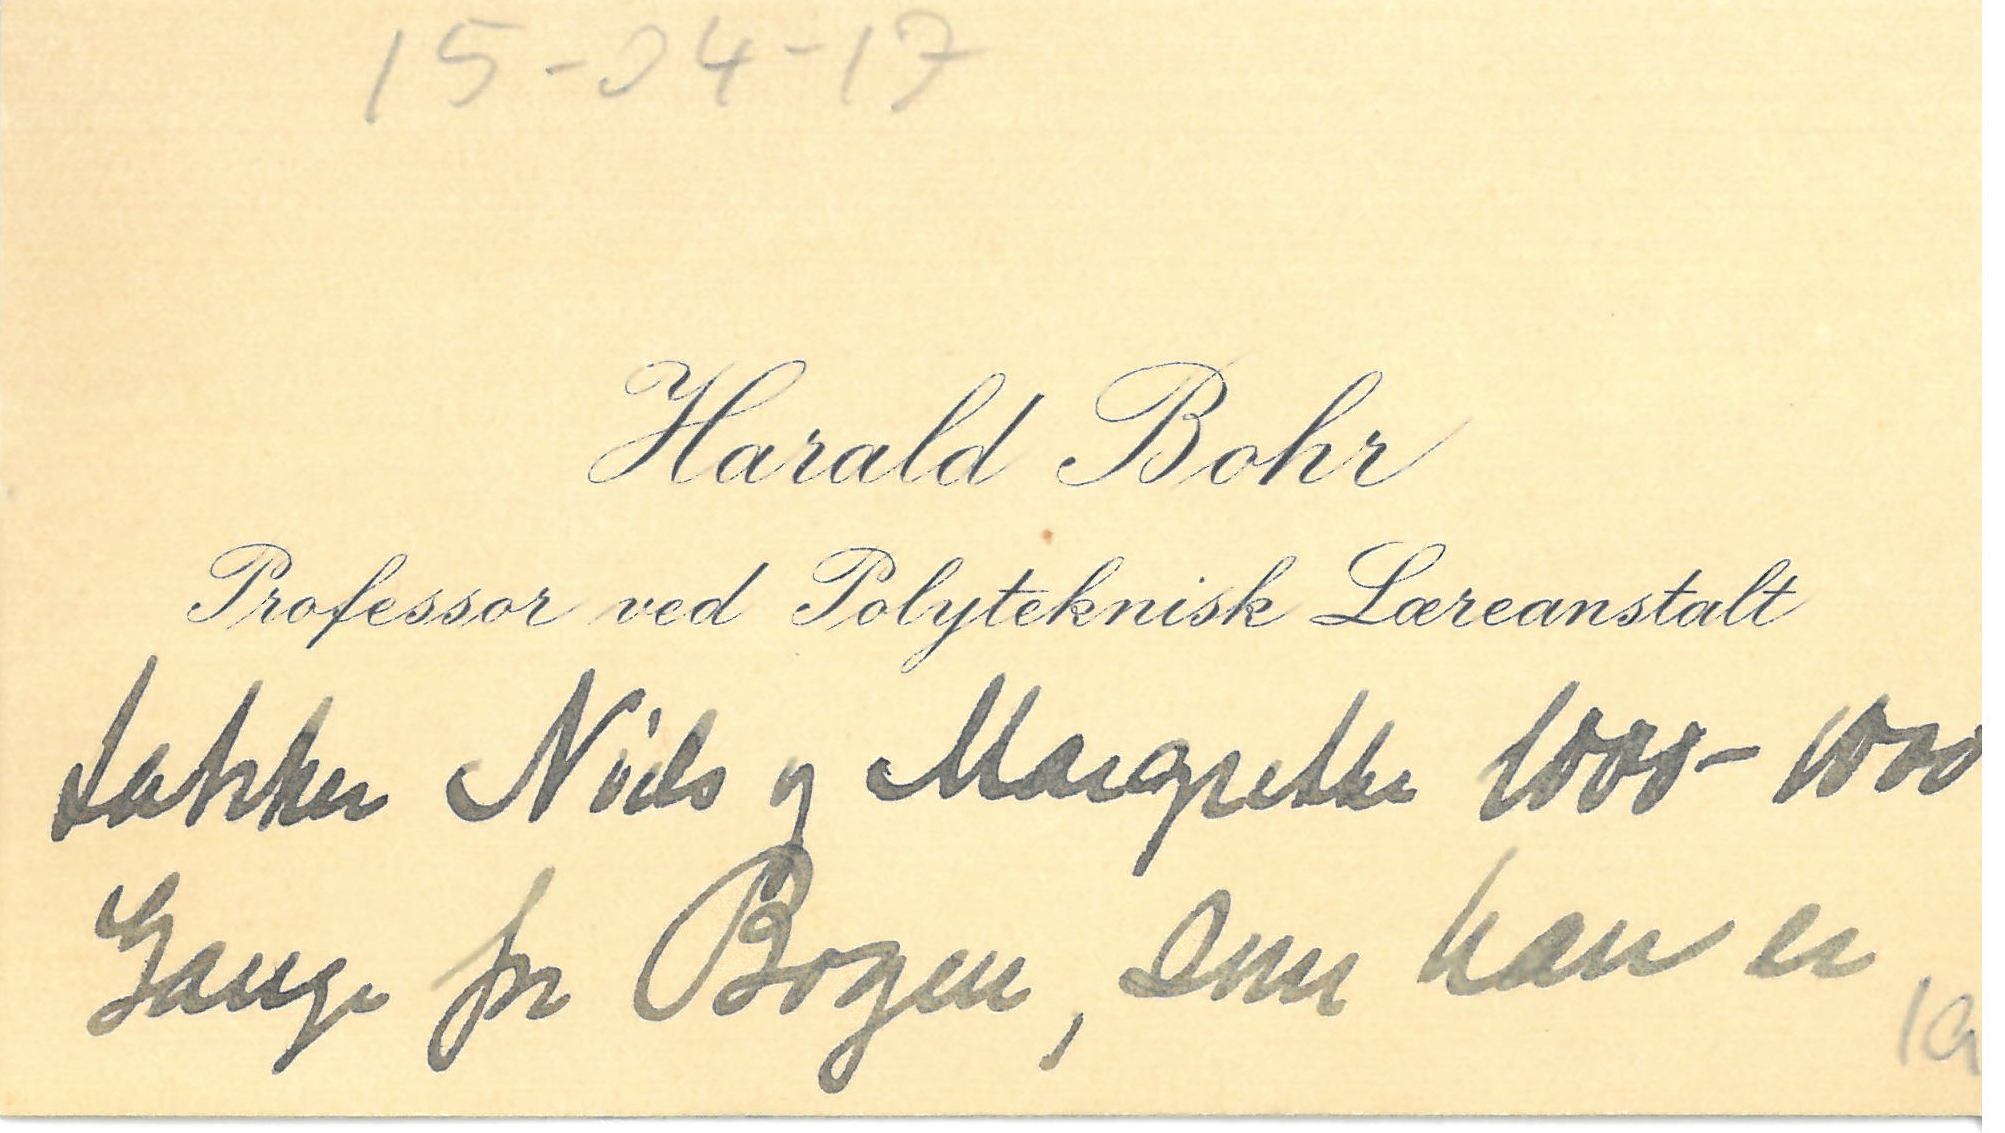 15-04-17
Harald Bohr
Professor ved Polyteknisk Læreanstalt
takker Niels og Margrethe 1000-1000
Gange for Bogen, som han er
1a